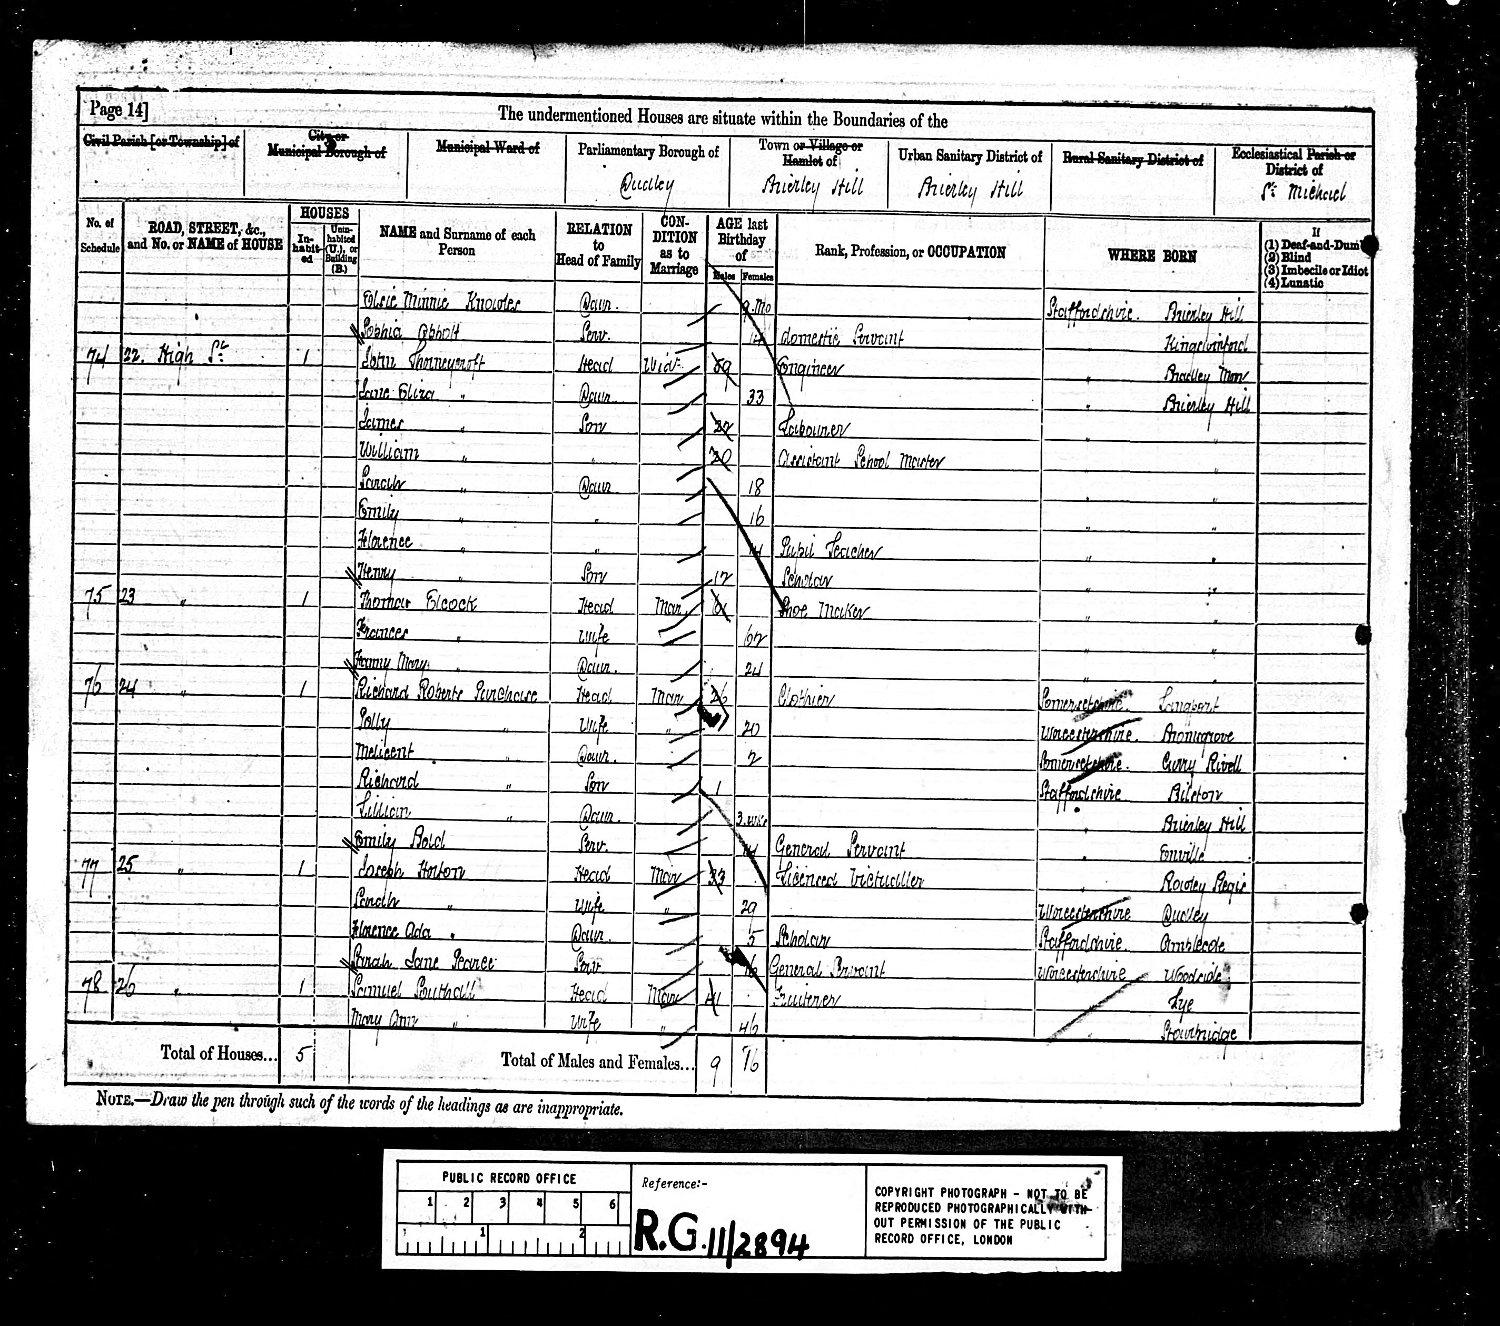 Page 14]
The undermentioned Houses are situate within the Boundaries of the
Civil Parish [or Township] of
City or Municipal Borough of
Municipal Ward of
Parliamentary Borough of
Dudley
Town or Village or Hamlet of
Brierley Hill
Urban Sanitary District of
Brierley Hill
Rural Sanitary District of
Ecclesiastical Parish or District of
St Michael
No. of Schedule
ROAD, STREET, &c., and No. or NAME of HOUSE
HOUSES
In-habit-ed
Unin-habited (U.), or Building (B.)
NAME and Surname of each Person
RELATION to Head of Family
CON-DITION as to Marriage
AGE last Birthday of
Males Females
Rank, Profession, or OCCUPATION
WHERE BORN
If
(1) Deaf-and-Dumb
(2) Blind
(3) Imbecile or Idiot
(4) Lunatic
Elsie Minnie Knowles Daur. 9 Mo Staffordshire. Brierley Hill
Sophia Abbott Serv. 14 domestic Servant " Kingswinford
74 22. High St. 1 John Thorneycroft Head Widr. 59 Engineer " Bradley
Jane Eliza " Daur. 33 " Brierley Hill
James " Son 22 Labourer " "
William " " 20 Assistant School Master " "
Sarah " Daur. 18 " "
Emily " " 16 " "
Florence " " 14 Pupil Teacher " "
Henry " Son 12 Scholar " "
75 23 " 1 Thomas Elcock Head Mar. 61 Shoe Maker " "
Frances " Wife 62 " "
Fanny Mary " Daur. 24 " "
76 24 " 1 Richard Roberts Purchase Head Mar 26 Clothier Somersetshire. Langport
Polly " Wife " 20 Worcestershire. Bromsgrove
Melicent " Daur. 2 Somersetshire. Curry Rivell
Richard " Son 1 Staffordshire Bilston
Lillian " Daur. 3 wks " Brierley Hill
Emily Bold Serv. 14 General Servant " Enville
77 25 " 1 Joseph Horton Head Mar 33 Licenced Victualler " Rowley Regis
Sarah " Wife " 29 Worcestershire Dudley
Florence Ada " Daur. 5 Scholar Staffordshire Amblecote
Sarah Jane Pearce Serv. General Servant Worcestershire Woodside
78 26 " 1 Samuel Southall Head Mar 41 Fruiterer " Lye
Mary Ann " Wife " 46 " Stourbridge
Total of Houses... 5 Total of Males and Females... 9 16
NOTE.—Draw the pen through such of the words of the headings as are inappropriate.
PUBLIC RECORD OFFICE
1 2 3 4 5 6
1 2
Reference:-
R.G. 11/2894
COPYRIGHT PHOTOGRAPH - NOT TO BE
REPRODUCED PHOTOGRAPHICALLY WITH-
OUT PERMISSION OF THE PUBLIC
RECORD OFFICE, LONDON